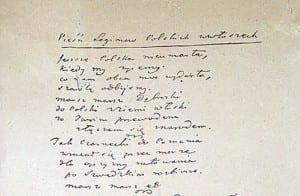 Pieśń Legionów Polskich we Włoszech
Jeszcze Polska nieumarła,
kiedy my żyiemy.
co nam obca moc wydarła,
szablą odbijemy.
marsz marsz Dąbrowski
do Polski z ziemi włoski
za Twoim przewodem
złączem się z narodem.
Jak Czarnecki do Poznania
wracał się przez morze
dla oyczyzny ratowania
po Szwedzkim rozbiorze.
marsz marsz